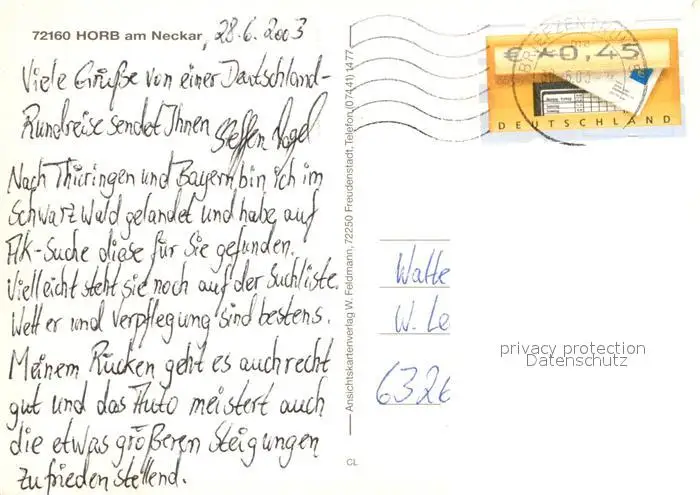 72160 HORB am Neckar, 28.6.2003
Viele Grüße von einer Deutschland-
Rundreise sendet Ihnen Steffen Vogel
Nach Thüringen und Bayern bin ich im
Schwarzwald gelandet und habe auf
AK-Suche diese für Sie gefunden.
Vielleicht steht sie noch auf der Suchliste.
Wetter und Verpflegung sind bestens.
Meinem Rücken geht es auch recht
gut und das Auto meistert auch
die etwas größeren Steigungen
zufriedenstellend.
Ansichtskartenverlag W. Feldmann, 72250 Freudenstadt, Telefon (07441) 1477
CL
€ *0,45
DEUTSCHLAND
BRIEFZENTRUM
W. Le
6326
privacy protection
Datenschutz